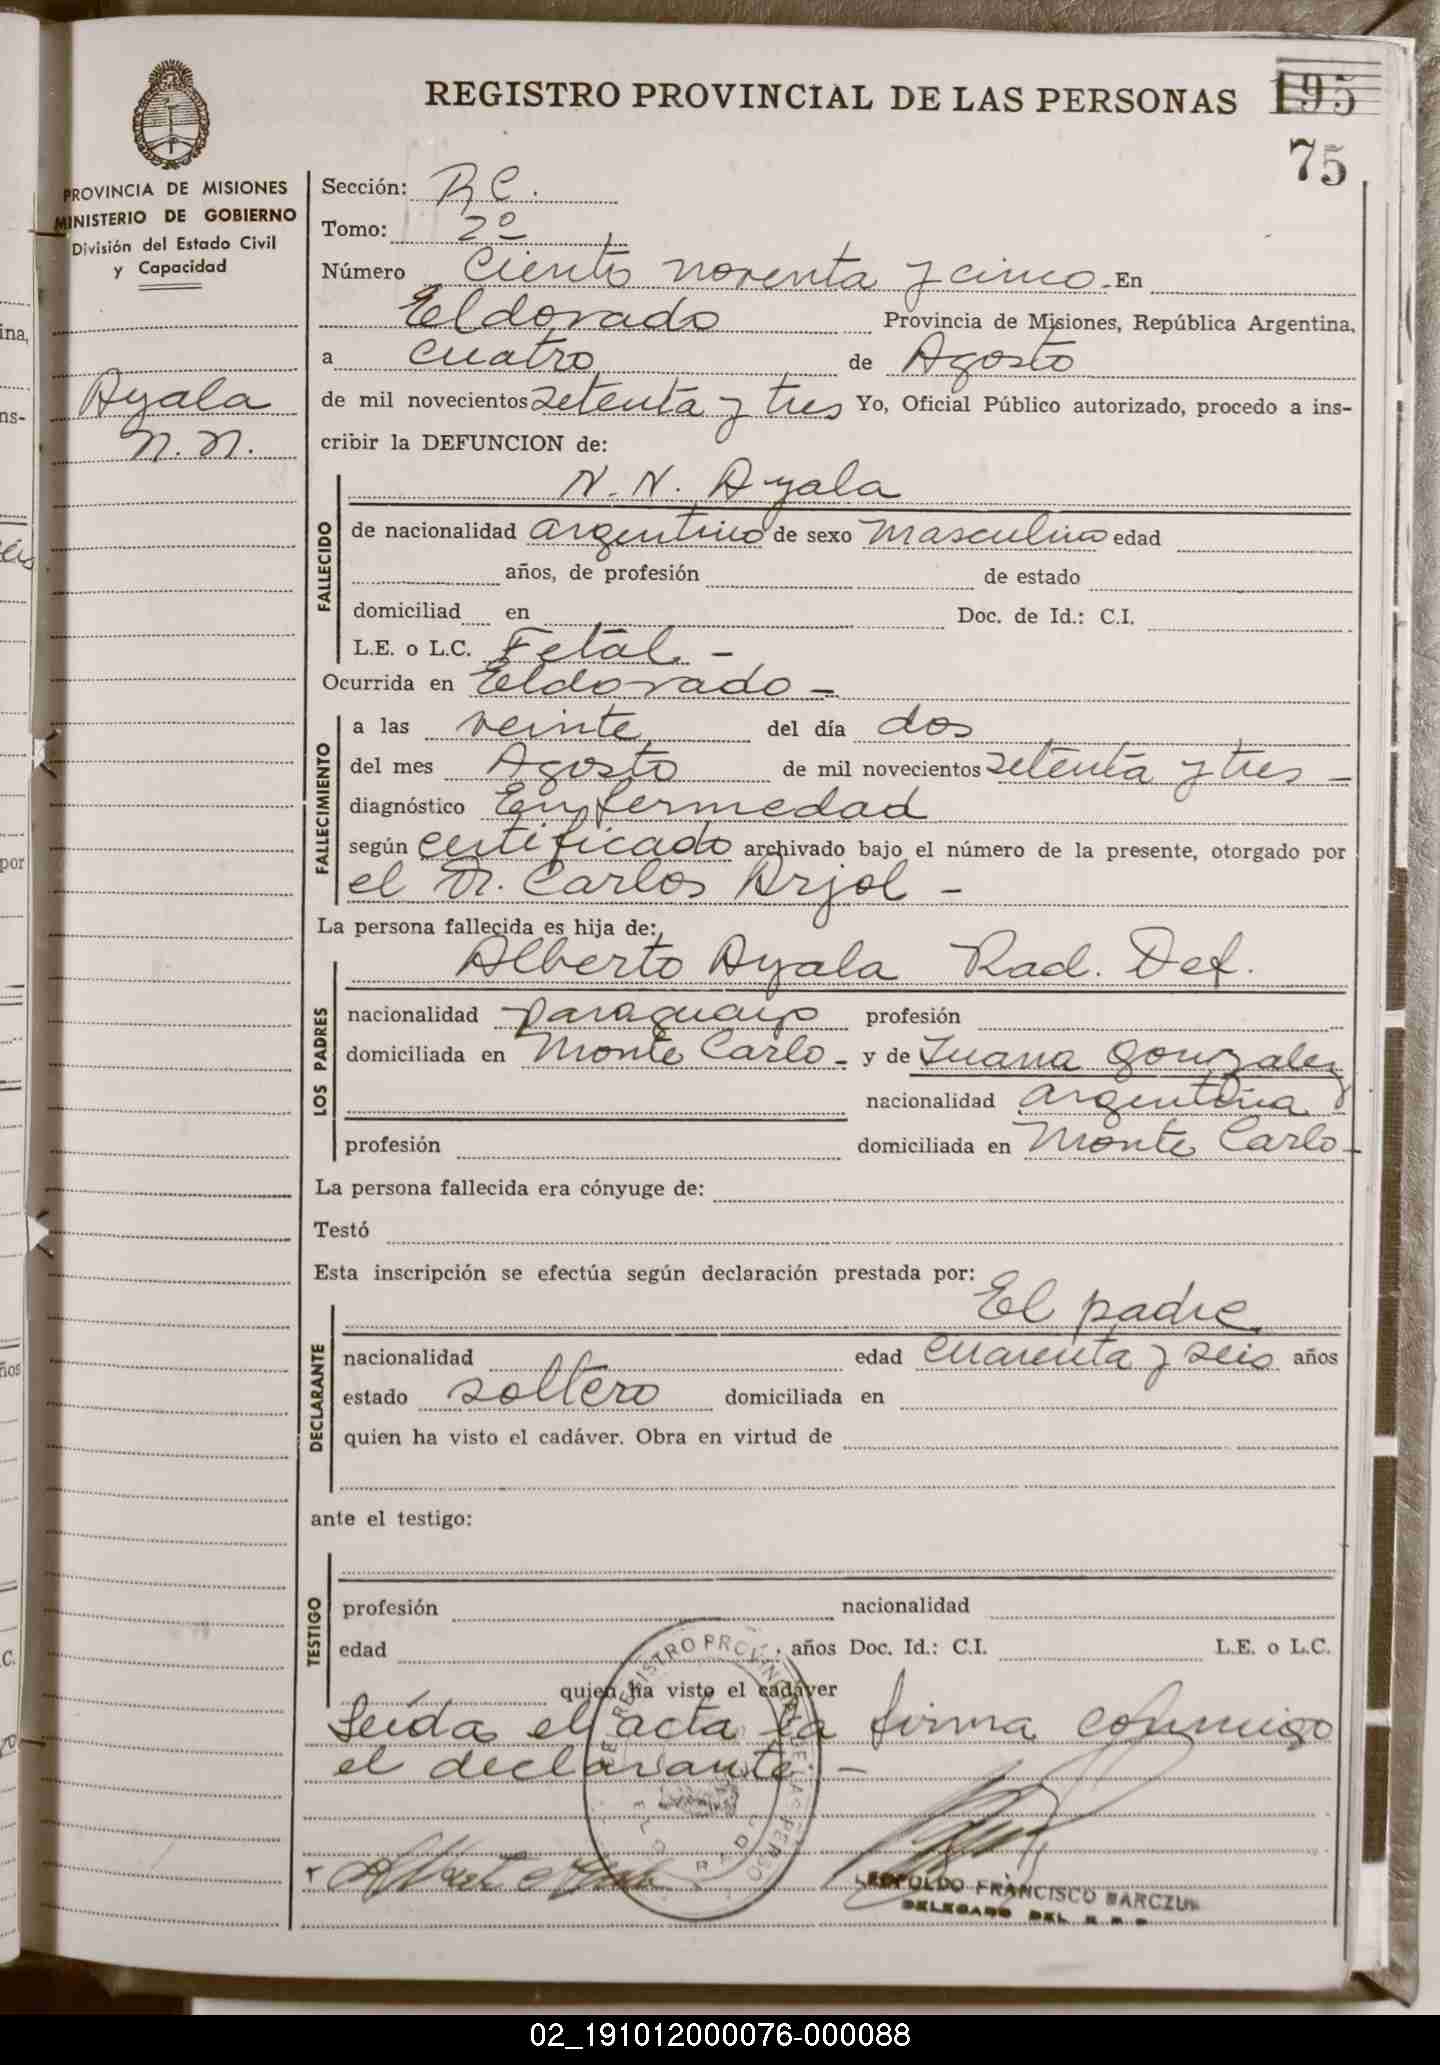 REGISTRO PROVINCIAL DE LAS PERSONAS 195
75
PROVINCIA DE MISIONES
MINISTERIO DE GOBIERNO
División del Estado Civil
y Capacidad
Ayala
N. N.
Sección: R C.
Tomo: 2º
Número Ciento noventa y cinco - En
Eldorado Provincia de Misiones, República Argentina,
a cuatro de Agosto
de mil novecientos setenta y tres Yo, Oficial Público autorizado, procedo a ins-
cribir la DEFUNCION de:
N. N. Ayala
FALLECIDO
de nacionalidad argentino de sexo masculino edad
años, de profesión de estado
domiciliad en Doc. de Id.: C.I.
L.E. o L.C. Fetal -
Ocurrida en Eldorado -
FALLECIMIENTO
a las veinte del día dos
del mes Agosto de mil novecientos setenta y tres -
diagnóstico Enfermedad
según certificado archivado bajo el número de la presente, otorgado por
el Dr. Carlos Arjol -
La persona fallecida es hija de:
Alberto Ayala Rad. Def.
LOS PADRES
nacionalidad paraguayo profesión
domiciliada en Monte Carlo - y de Juana Gonzalez
nacionalidad argentina
profesión domiciliada en Monte Carlo -
La persona fallecida era cónyuge de:
Testó
Esta inscripción se efectúa según declaración prestada por:
El padre
DECLARANTE
nacionalidad edad cuarenta y seis años
estado soltero domiciliada en
quien ha visto el cadáver. Obra en virtud de
ante el testigo:
TESTIGO
profesión nacionalidad
edad años Doc. Id.: C.I. L.E. o L.C.
quien ha visto el cadáver
Leída el acta la firma conmigo
el declarante. -
REGISTRO PROVINCIAL DE LAS PERSO
LEOPOLDO FRANCISCO
DELEGADO DEL R. P. P.
02_191012000076-000088